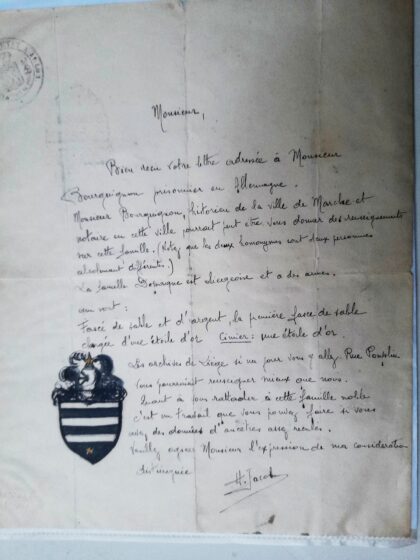 Monsieur,
Bien reçu votre lettre adressée à Monsieur
Bourguignon prisonnier en Allemagne.
Monsieur Bourguignon, historien de la ville de Marche et
notaire en cette ville pourrait peut être vous donner des renseignements
sur cette famille. (Notez que les deux homonymes sont deux personnes
absolument différentes.)
La famille est liégeoise et a des armes.
qui sont:
Fascé de sable et d'argent, la première fasce de sable
chargée d'une étoile d'or Cimier: une étoile d'or.
Les archives de Liège si un jour vous y allez, Rue
vous pourraient renseigner mieux que nous.
Quant à vous rattacher à cette famille noble
c'est un travail que vous pouvez faire si vous
avez des données d'ancêtres assez reculés.
Veuillez agréer Monsieur l'expression de ma considération
distinguée
H. Jacob